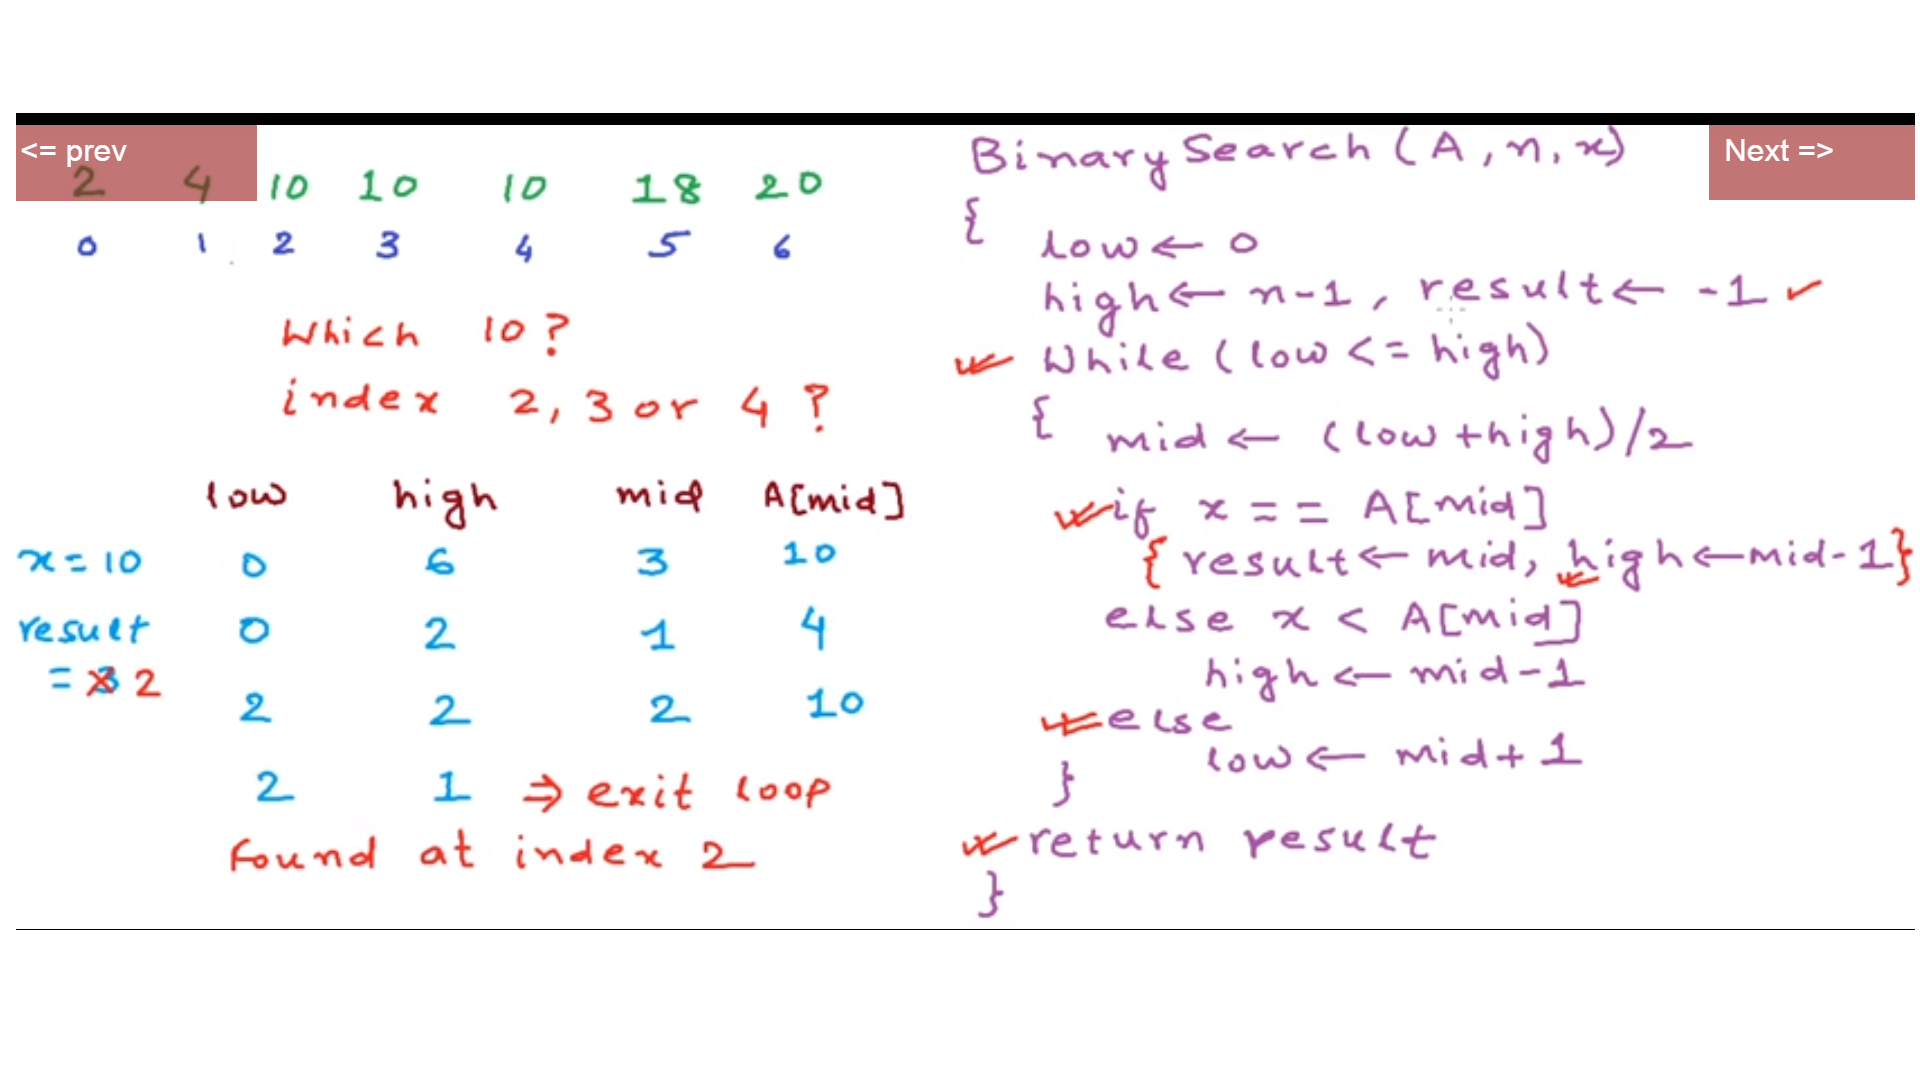 <= prev
Next =>
2 4 10 10 10 18 20
0 1 2 3 4 5 6
Which 10?
index 2, 3 or 4 ?
low high mid A[mid]
x=10 0 6 3 10
result 0 2 1 4
= 3 2
2 2 2 10
2 1 ⇒ exit loop
Found at index 2
Binary Search (A, n, x)
{
low ← 0
high ← n-1, result ← -1
While (low <= high)
{ mid ← (low + high)/2
if x == A[mid]
{ result ← mid, high ← mid-1}
else x < A[mid]
high ← mid-1
else
low ← mid+1
}
return result
}